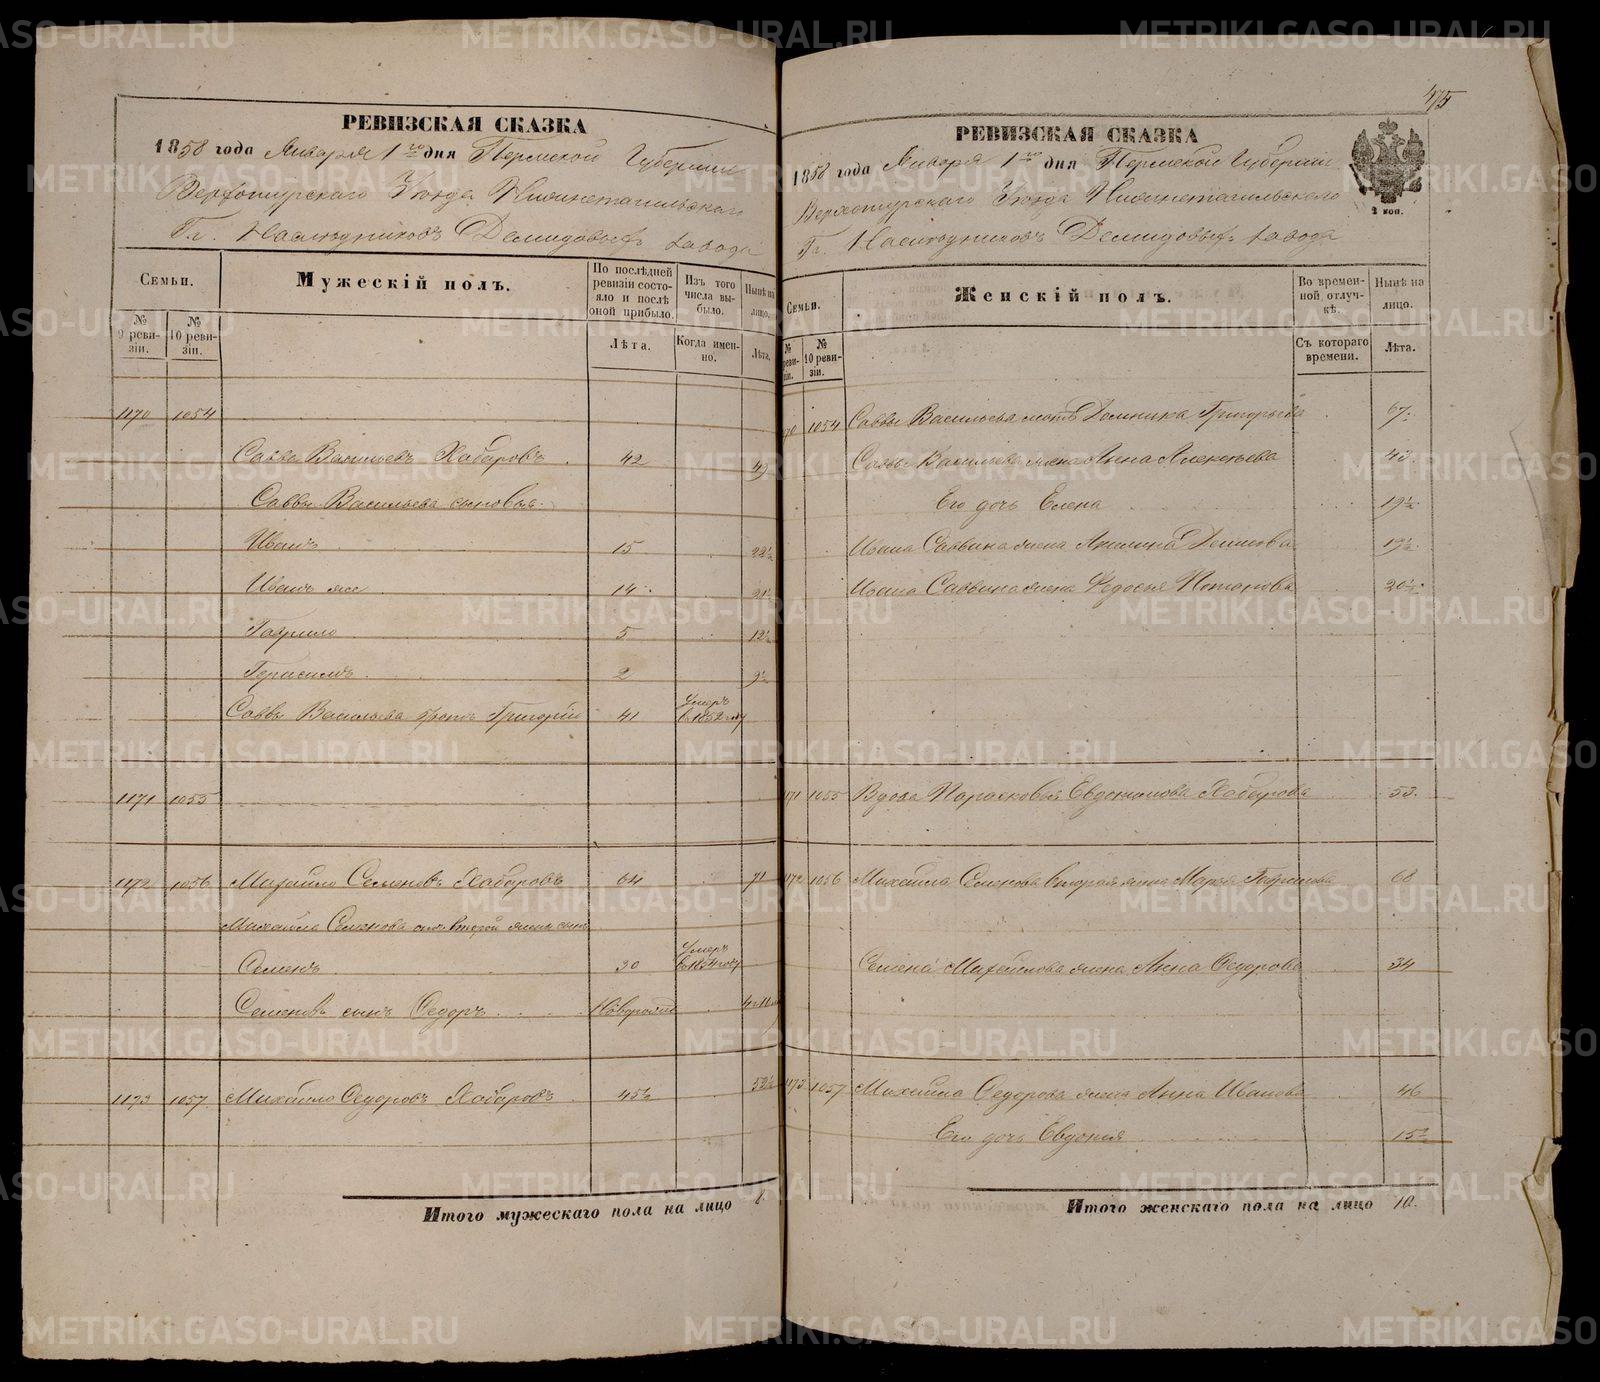 475
РЕВИЗСКАЯ СКАЗКА
1858 года Января 1го дня Пермской Губернии
Верхотурскаго Уѣзда Нижнетагильскаго
Гг. Наслѣдниковъ Демидовыхъ завода
Семьи.
Мужескій полъ.
По послѣдней ревизіи состояло и послѣ оной прибыло.
Изъ того числа выбыло.
Нынѣ на лицо.
№ 9 ревизіи.
№ 10 ревизіи.
Лѣта.
Когда именно.
Лѣта.
1170 1054
Савва Васильевъ Хабаровъ 42 49
Саввы Васильева сыновья
Иванъ 15 22½
Иванъ же 14 21½
Гаврило 5 12½
Герасимъ 2 9½
Саввы Васильева братъ Григорій 41 Умеръ в 1852 году
1171 1055
1172 1056 Михайло Семеновъ Хабаровъ 64 71
Михайла Семенова отъ второй жены сынъ
Семенъ 30 Умеръ в 1854 году
Семеновъ сынъ Федоръ Новорожд
1173 1057 Михайло Федоровъ Хабаровъ 45½ 52½
Итого мужескаго пола на лицо 8.
РЕВИЗСКАЯ СКАЗКА
1858 года Января 1го дня Пермской Губерніи
Верхотурскаго Уѣзда Нижнетагильскаго
Гг. Наслѣдниковъ Демидовыхъ завода
2 коп.
Семьи.
Женскій полъ.
Во временной отлучкѣ.
Нынѣ на лицо.
№ реви- зіи.
№ 10 ревизіи.
Съ котораго времени.
Лѣта.
70 1054 Саввы Васильева мать Домника Григорьева 67
Саввы Васильева жена Анна Алексѣева 43
Его дочь Елена 19½
Ивана Саввина жена 19½
Ивана Саввина жена Федосья Потапова 20½
171 1055 Вдова Парасковья Евдокимова Хабарова 53.
172 1056 Михайла Семенова вторая жена Марья Гаврилова 68
Семена Михайлова жена Анна Федорова 34
173 1057 Михайла Федорова жена Анна Иванова 46
Его дочь Евдокия 15½
Итого женскаго пола на лицо 10.
METRIKI.GASO-URAL.RU